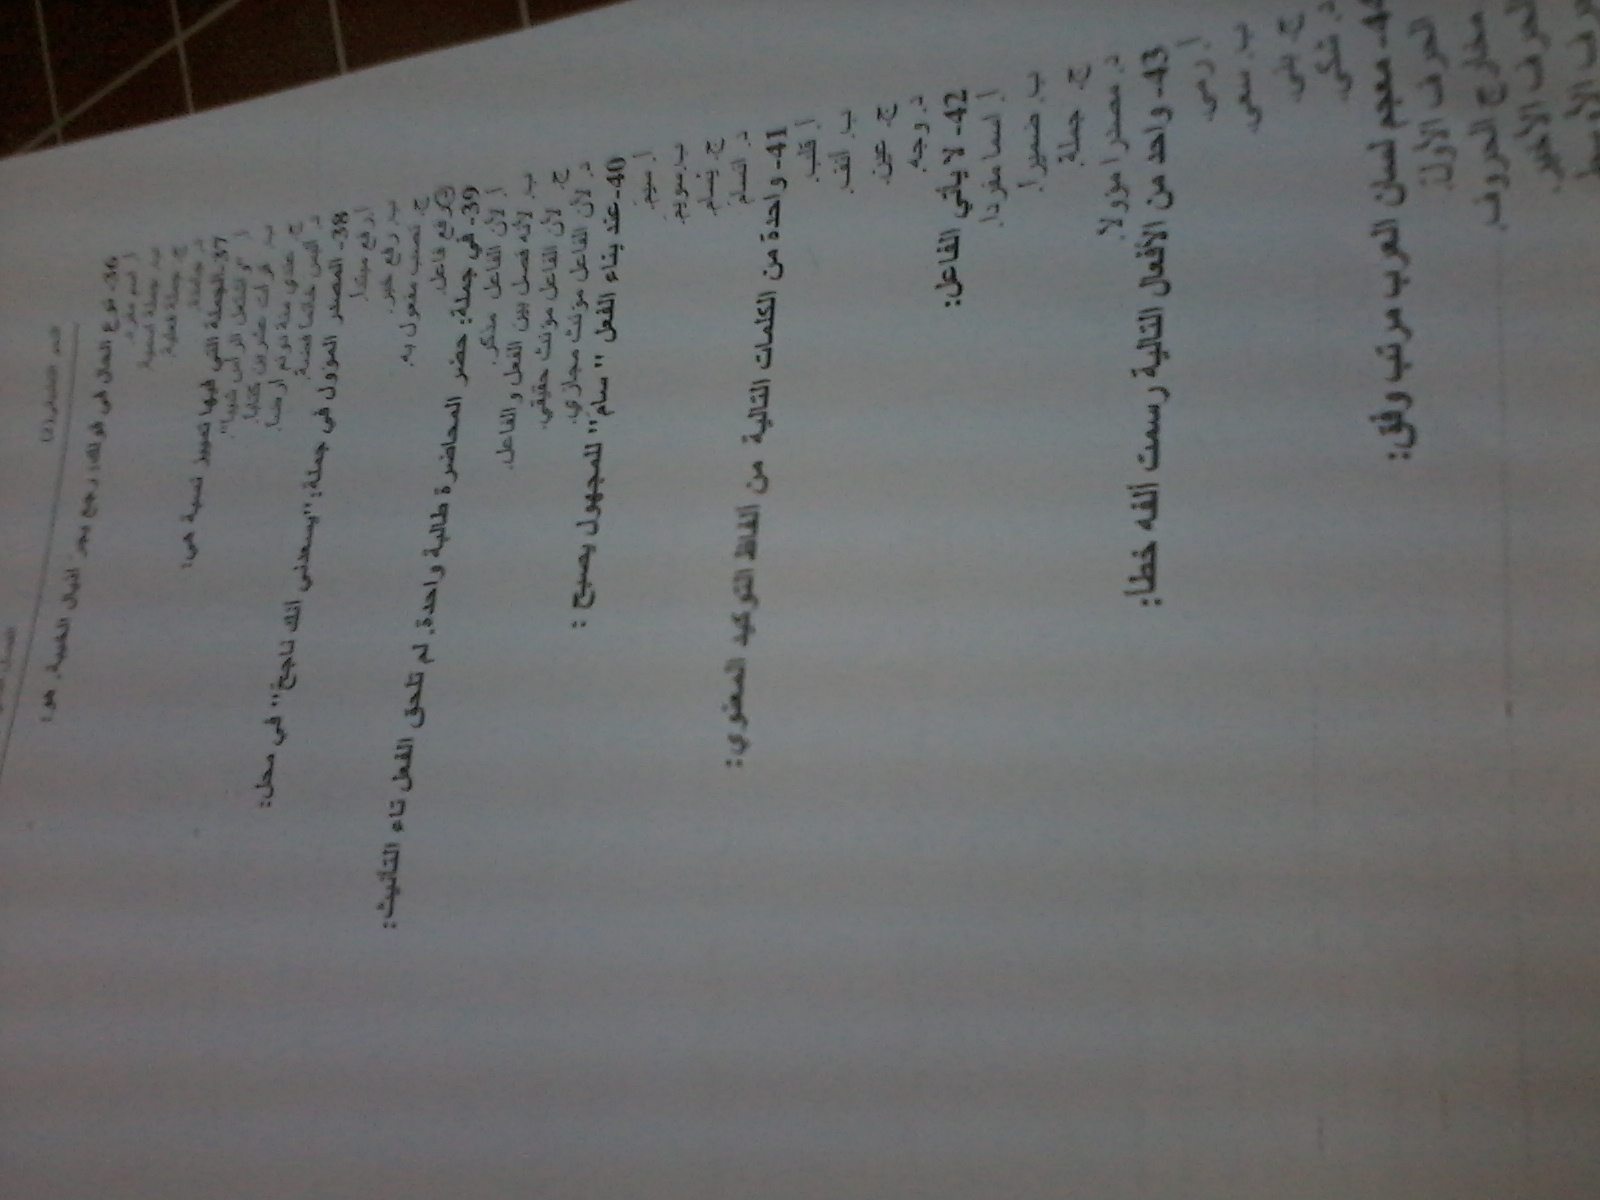 36- نوع الحال في قولك: رجع يجر اذيال الخيبة، هو:
أ. اسم مفرد.
ب. جملة اسمية
ج. جملة فعلية.
37- الجملة التي فيها تمييز نسبة هي:
أ. "واشتعل الرأس شيبا".
ب. قرأت عشرين كتابا.
ج. عندي مئة دونم ارضا.
38- المصدر المؤول في جملة: "يسعدني انك ناجح" في محل:
أ. رفع مبتدأ.
ب. رفع خبر.
ج. نصب مفعول به.
د. رفع فاعل.
39- في جملة: حضر المحاضرة طالبة واحدة. لم تلحق الفعل تاء التأنيث:
أ. لأن الفاعل مذكر.
ب. لأنه فصل بين الفعل والفاعل.
ج. لأن الفاعل مؤنث حقيقي.
د. لأن الفاعل مؤنث مجازي.
40- عند بناء الفعل "سام" للمجهول يصبح :
أ. سيم.
ب. سويم.
ج. يسام
د. انسام
41- واحدة من الكلمات التالية من الفاظ التوكيد المعنوي:
أ. قلب.
ب. انف.
ج. عين.
د. وجه.
42- لا يأتي الفاعل:
أ. اسما مفردا.
ب. ضميرا.
ج. جملة.
د. مصدرا مؤولا.
43- واحد من الأفعال التالية رسمت ألفه خطا:
أ. رمى.
ب. سعى.
ج. بنى.
د. شكى.
44- معجم لسان العرب مرتب وفق:
الحرف الأول.
مخارج الحروف.
الحرف الأخير.